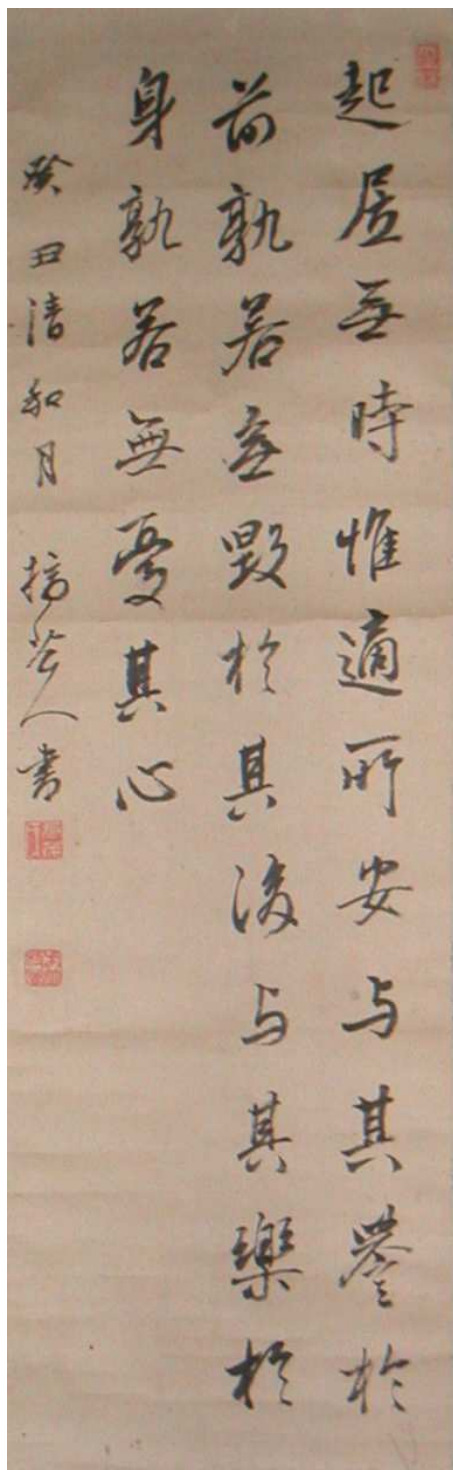 起居無時惟適所安与其譽於
前孰若無毀於其後与其樂於
身孰若無憂其心
癸丑清和月 人書